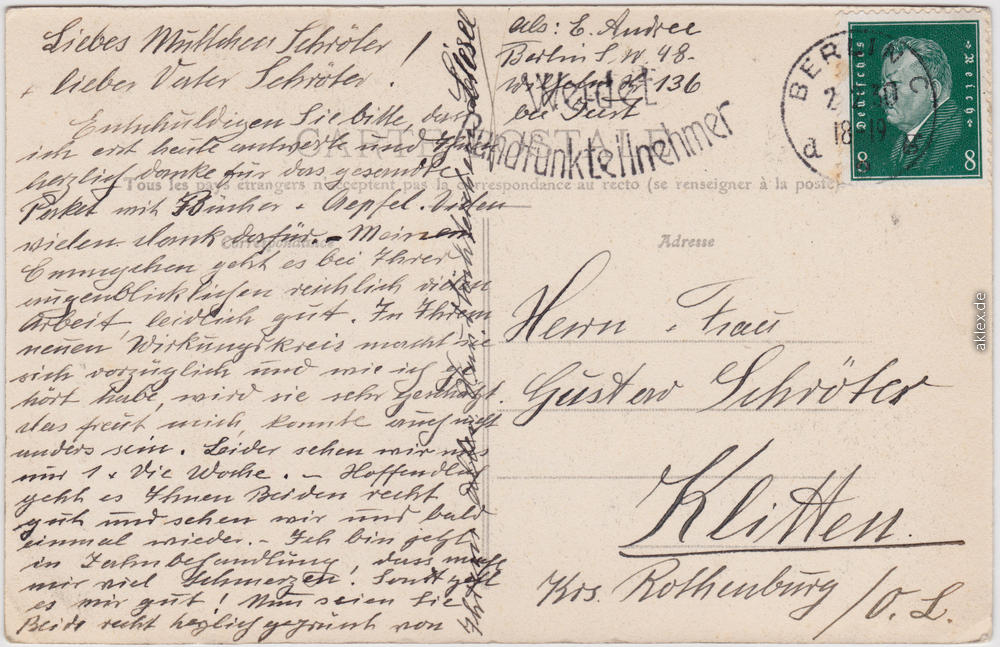 Liebes Muttchen Schröter!
Lieber Vater Schröter!
Entschuldigen Sie bitte, dass
ich erst heute antworte und Ihnen
herzlich danke für das gesandte
Paket mit Bücher + Aepfel. Vielen
vielen dank dafür. – Meinem
geht es bei Ihrer
augenblicklichen reichlich vielen
Arbeit, leidlich gut. In Ihrem
neuen Wirkungskreis macht sie
sich vorzüglich und wie ich ge-
hört habe, wird sie sehr geschätzt.
das freut mich, konnte auch nicht
anders sein. Leider sehen wir uns
nur 1 x die Woche. – Hoffendlich
geht es Ihnen Beiden recht
gut und sehen wir uns bald
einmal wieder. – Ich bin jetzt
in Zahnbehandlung, dass macht
mir viel Schmerzen! Sonst geht
es mir gut! Nun seien Sie
Beide recht herzlich gegrüsst von
Ihrem
Liesel
Abs: E. Andree
Berlin S.W. 48.
136
bei
CARTE POSTALE
Tous les pays étrangers n'acceptent pas la correspondance au recto (se renseigner à la poste)
Correspondance
Adresse
Werdet
Rundfunkteilnehmer
BERLIN
30
18-19
a
Deutsches Reich
8 8
Herrn + Frau
Gustav Schröter
Klitten.
Krs. Rothenburg /O. L.
aklex.de